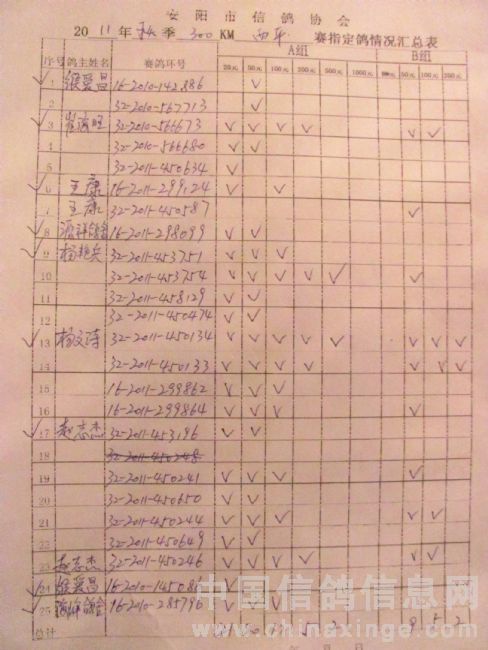 安阳市信鸽协会
2011年秋季300KM 西平 赛指定鸽情况汇总表
序号 鸽主姓名 赛鸽环号 A组 B组
20元 50元 100元 200元 500元 1000元 50元 100元 200元
√ 1 侯爱昌 16-2010-142886 √
2 32-2010-567713 √
√ 3 32-2010-566673 √ √ √ √ √ √
4 32-2010-566680 √ √
5 32-2011-450634 √
√ 6 王康 16-2011-299124 √ √
7 王康 32-2011-450587 √
√ 8 16-2011-298099 √ √
√ 9 杨艳兵 32-2011-453751 √ √ √
10 32-2011-453754 √ √ √ √ √ √
11 32-2011-458129 √ √
12 32-2011-450474 √ √
√ 13 杨文涛 32-2011-450134 √ √ √ √ √ √ √ √
14 32-2011-450133 √ √ √ √ √ √ √
15 16-2011-299862 √ √ √
16 16-2011-299864 √ √ √ √
√ 17 赵志杰 32-2011-453196 √ √
18 32-2011-450248
19 32-2011-450241 √ √ √ √
20 32-2011-450650 √ √
21 32-2011-450244 √ √ √ √ √
22 32-2011-450649 √ √
23 赵志杰 32-2011-450246 √ √ √ √ √ √
√ 24 侯爱昌 16-2010-145086 √
√ 25 16-2010-285796 √ √ √
总计 5 2 9 5 2
中国信鸽信息网
www.chinaxinge.com
年 月 日